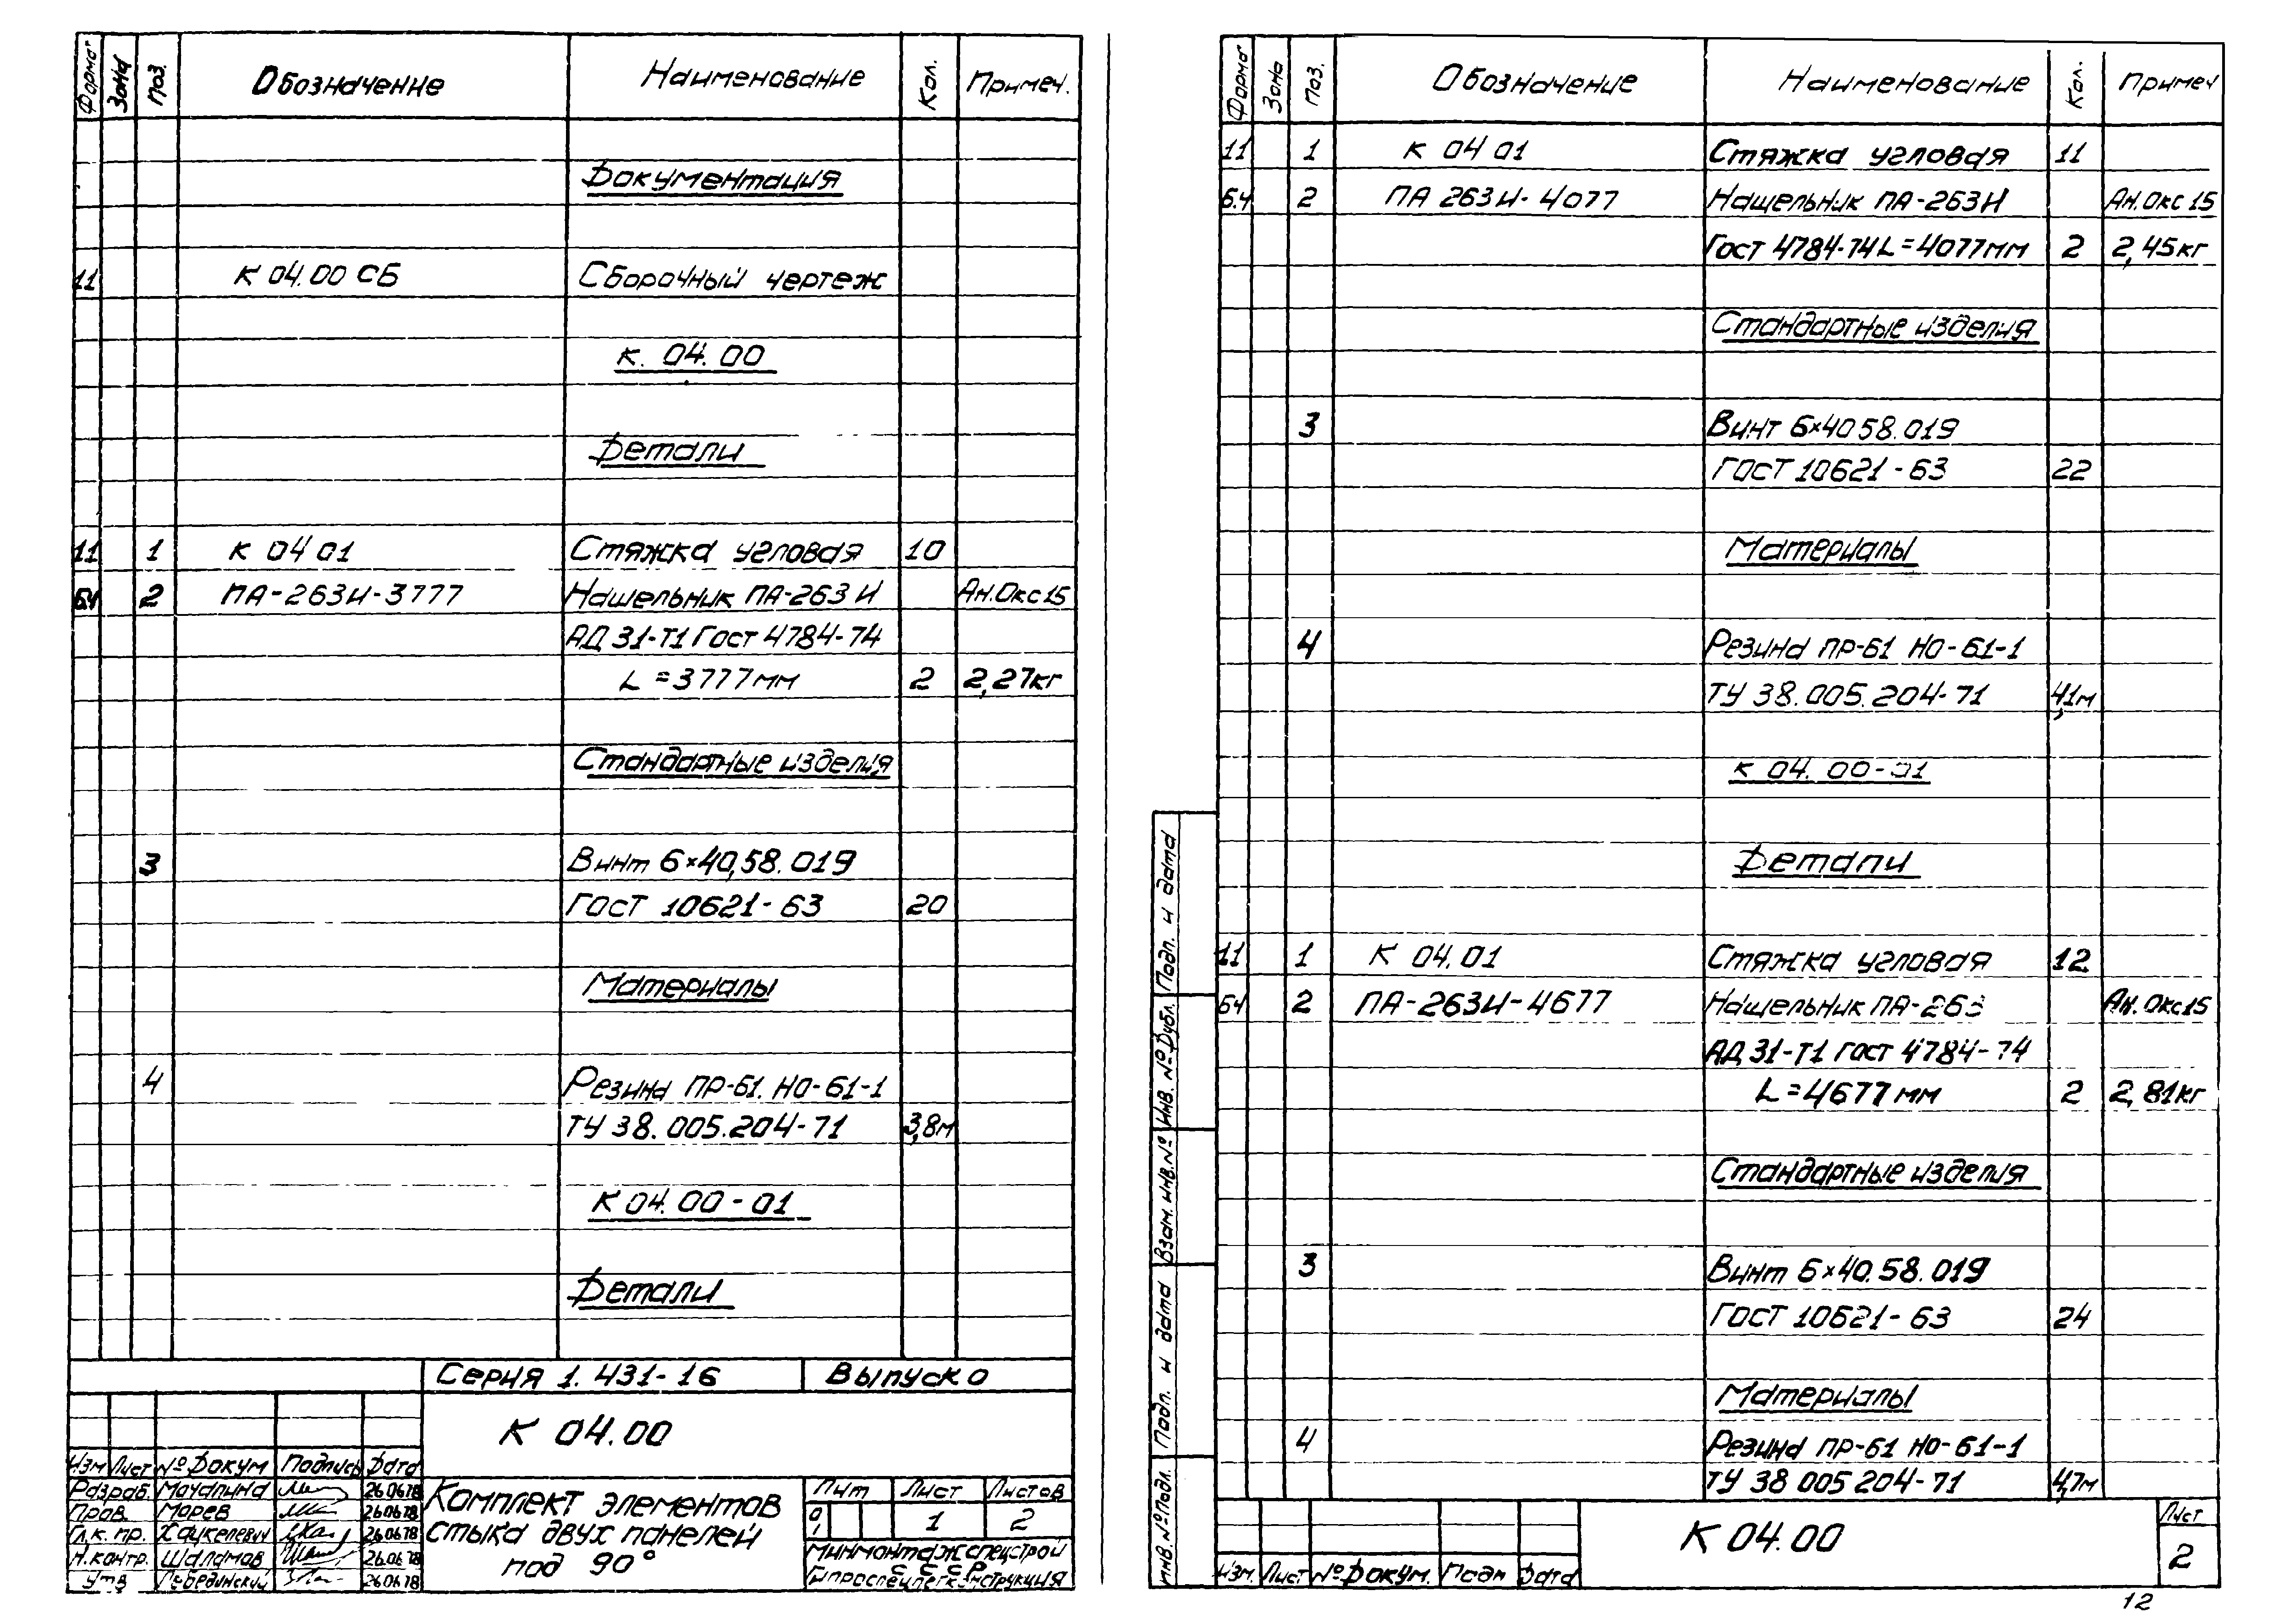 Формат Зона Поз. Обозначение Наименование Кол. Примеч.
Документация
11 К 04.00 СБ Сборочный чертеж
К. 04.00
Детали
11 1 К 04 01 Стяжка угловая 10
БЧ 2 ПА-263И-3777 Нащельник ПА-263 И Ан.Окс 15
АД 31-Т1 Гост 4784-74
L = 3777мм 2 2,27кг
Стандартные изделия
3 Винт 6×40,58.019
ГОСТ 10621-63 20
Материалы
4 Резина ПР-61. НО-61-1
ТУ 38.005.204-71 3,8м
К 04.00-01
Детали
Серия 1.431-16 Выпуск 0
К 04.00
Изм Лист № Докум Подпись Дата
Разраб. Мочалина 26.06.78
Пров. Морев 26.06.78
Гл.к.пр. Хацкелевич 26.06.78
Н.контр. Шаламов 26.06.78
Утв Лебединский 26.06.78
Комплект элементов
стыка двух панелей
под 90°
Лит Лист Листов
0 1 1 2
Минмонтажспецстрой
СССР
Гипроспецлегконструкция
Форма Зона Поз. Обозначение Наименование Кол. Примеч
11 1 К 04 01 Стяжка угловая 11
Б.Ч 2 ПА 263И-4077 Нащельник ПА-263И Ан.Окс 15
Гост 4784-74 L=4077мм 2 2,45кг
Стандартные изделия
3 Винт 6×40 58.019
ГОСТ 10621-63 22
Материалы
4 Резина ПР-61 НО-61-1
ТУ 38.005.204-71 4,1м
К 04.00-01
Детали
11 1 К 04.01 Стяжка угловая 12
БЧ 2 ПА-263И-4677 Нащельник ПА-263 Ан.Окс15
АД 31-Т1 Гост 4784-74
L=4677мм 2 2,81кг
Стандартные изделия
3 Винт 6×40.58.019
ГОСТ 10621-63 24
Материалы
4 Резина ПР-61 НО-61-1
ТУ 38 005 204-71 4,7м
Подп. и дата
Инв. № Дубл.
Взам. инв. №
Подп. и дата
Инв. № Подл.
Изм. Лист № Докум. Подп Дата
К 04.00
Лист
2
12